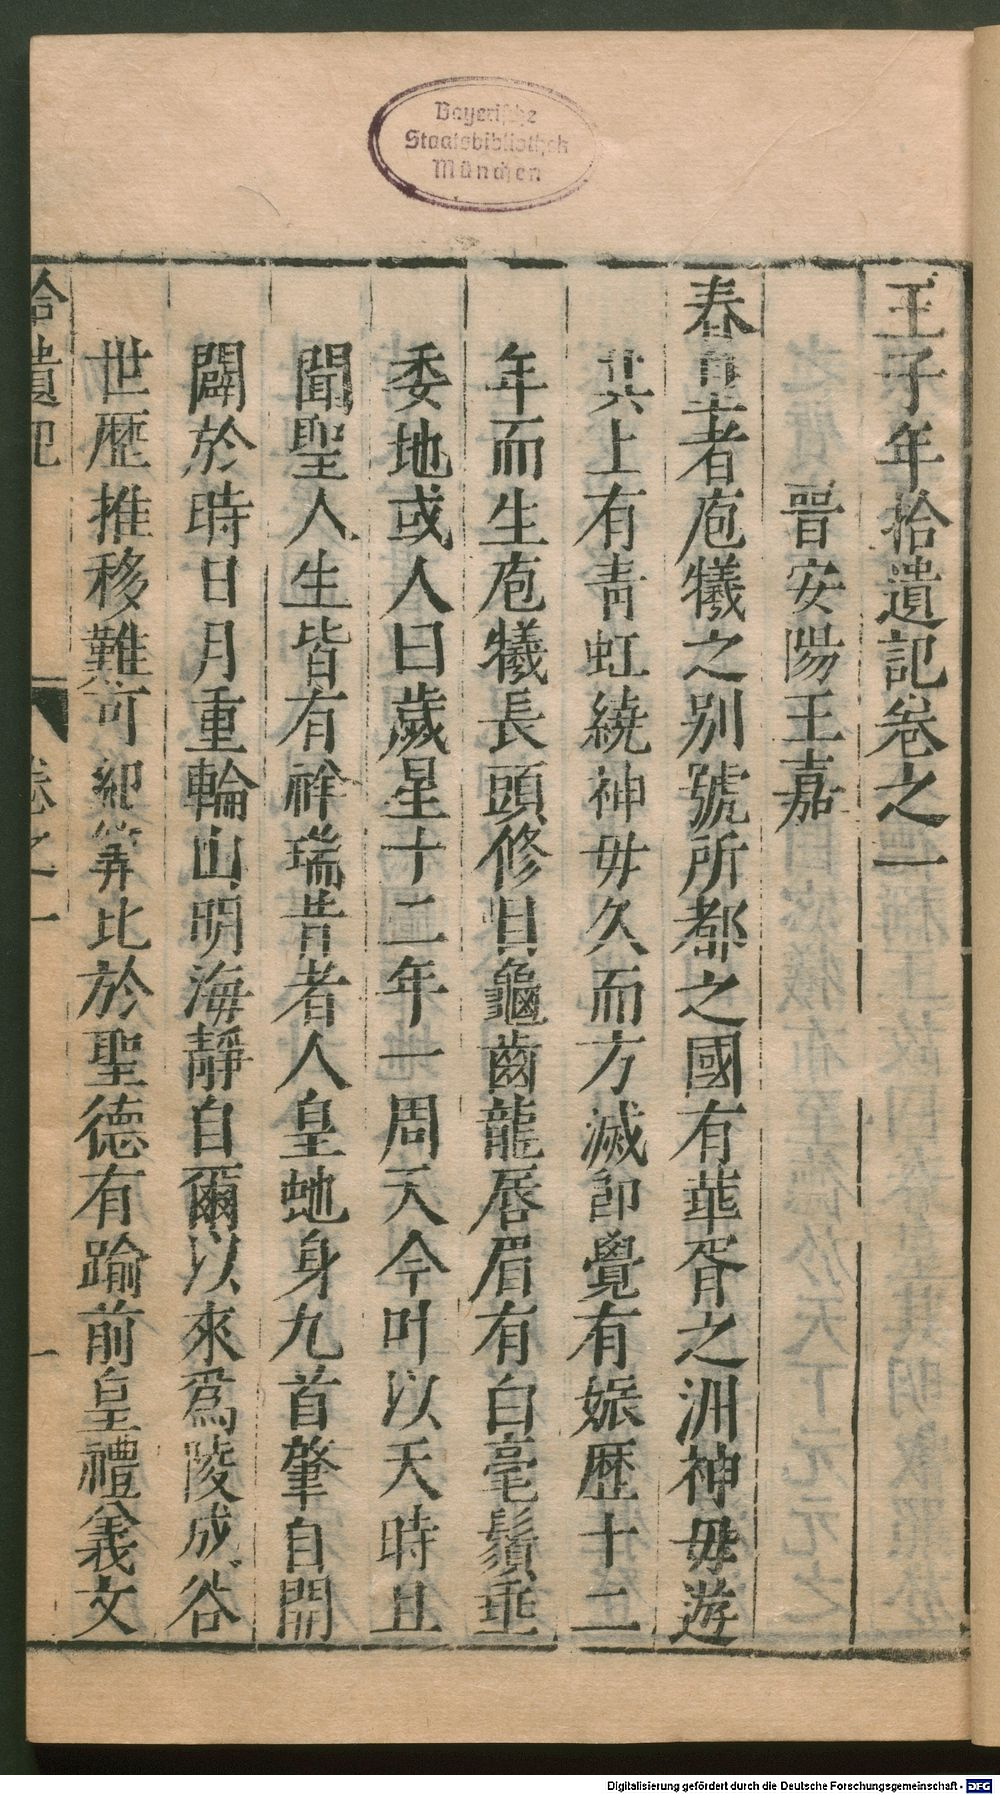 Bayerische
Staatsbibliothek
München
王子年拾遺記卷之一
晉安陽王嘉
春皇者庖犧之別號所都之國有華胥之洲神毋遊
其上有青虹繞神毋久而方滅卽覺有娠歴十二
年而生庖犧長頭修目龜齒龍唇眉有白毫鬚垂
委地或人曰歲星十二年一周天今叶以天時且
聞聖人生皆有祥瑞昔者人皇虵身九首肇自開
闢於時日月重輪山明海靜自爾以來爲陵成谷
世歴推移難可紀筭比於聖德有踰前皇禮義文
拾遺記 卷之一 一
Digitalisierung gefördert durch die Deutsche Forschungsgemeinschaft - DFG